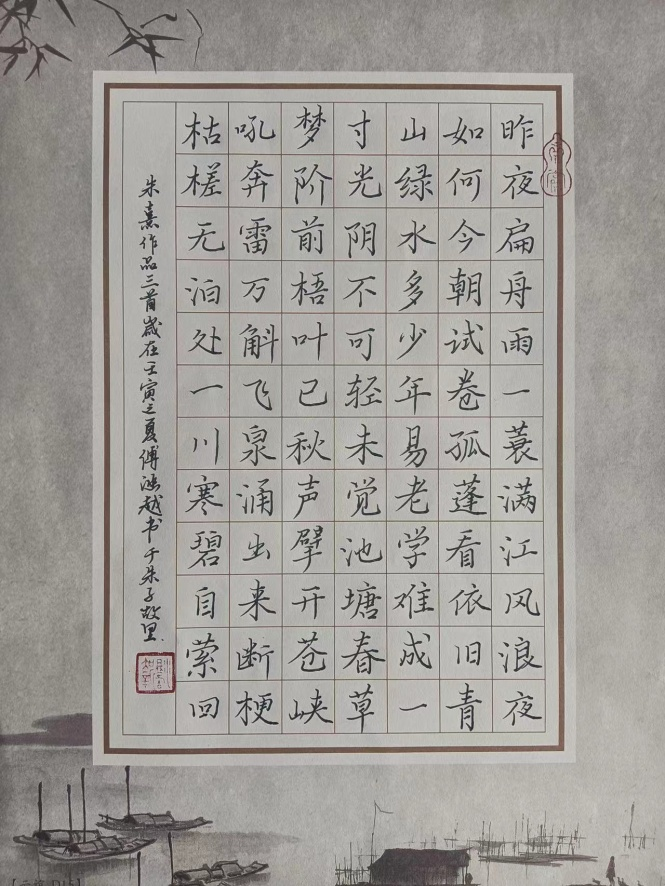 昨夜扁舟雨一蓑满江风浪夜
如何今朝试卷孤蓬看依旧青
山绿水多少年易老学难成一
寸光阴不可轻未觉池塘春草
梦阶前梧叶已秋声擘开苍峡
吼奔雷万斛飞泉涌出来断梗
枯槎无泊处一川寒碧自萦回
朱熹作品三首岁在壬寅之夏傅鸿越书于朱子故里